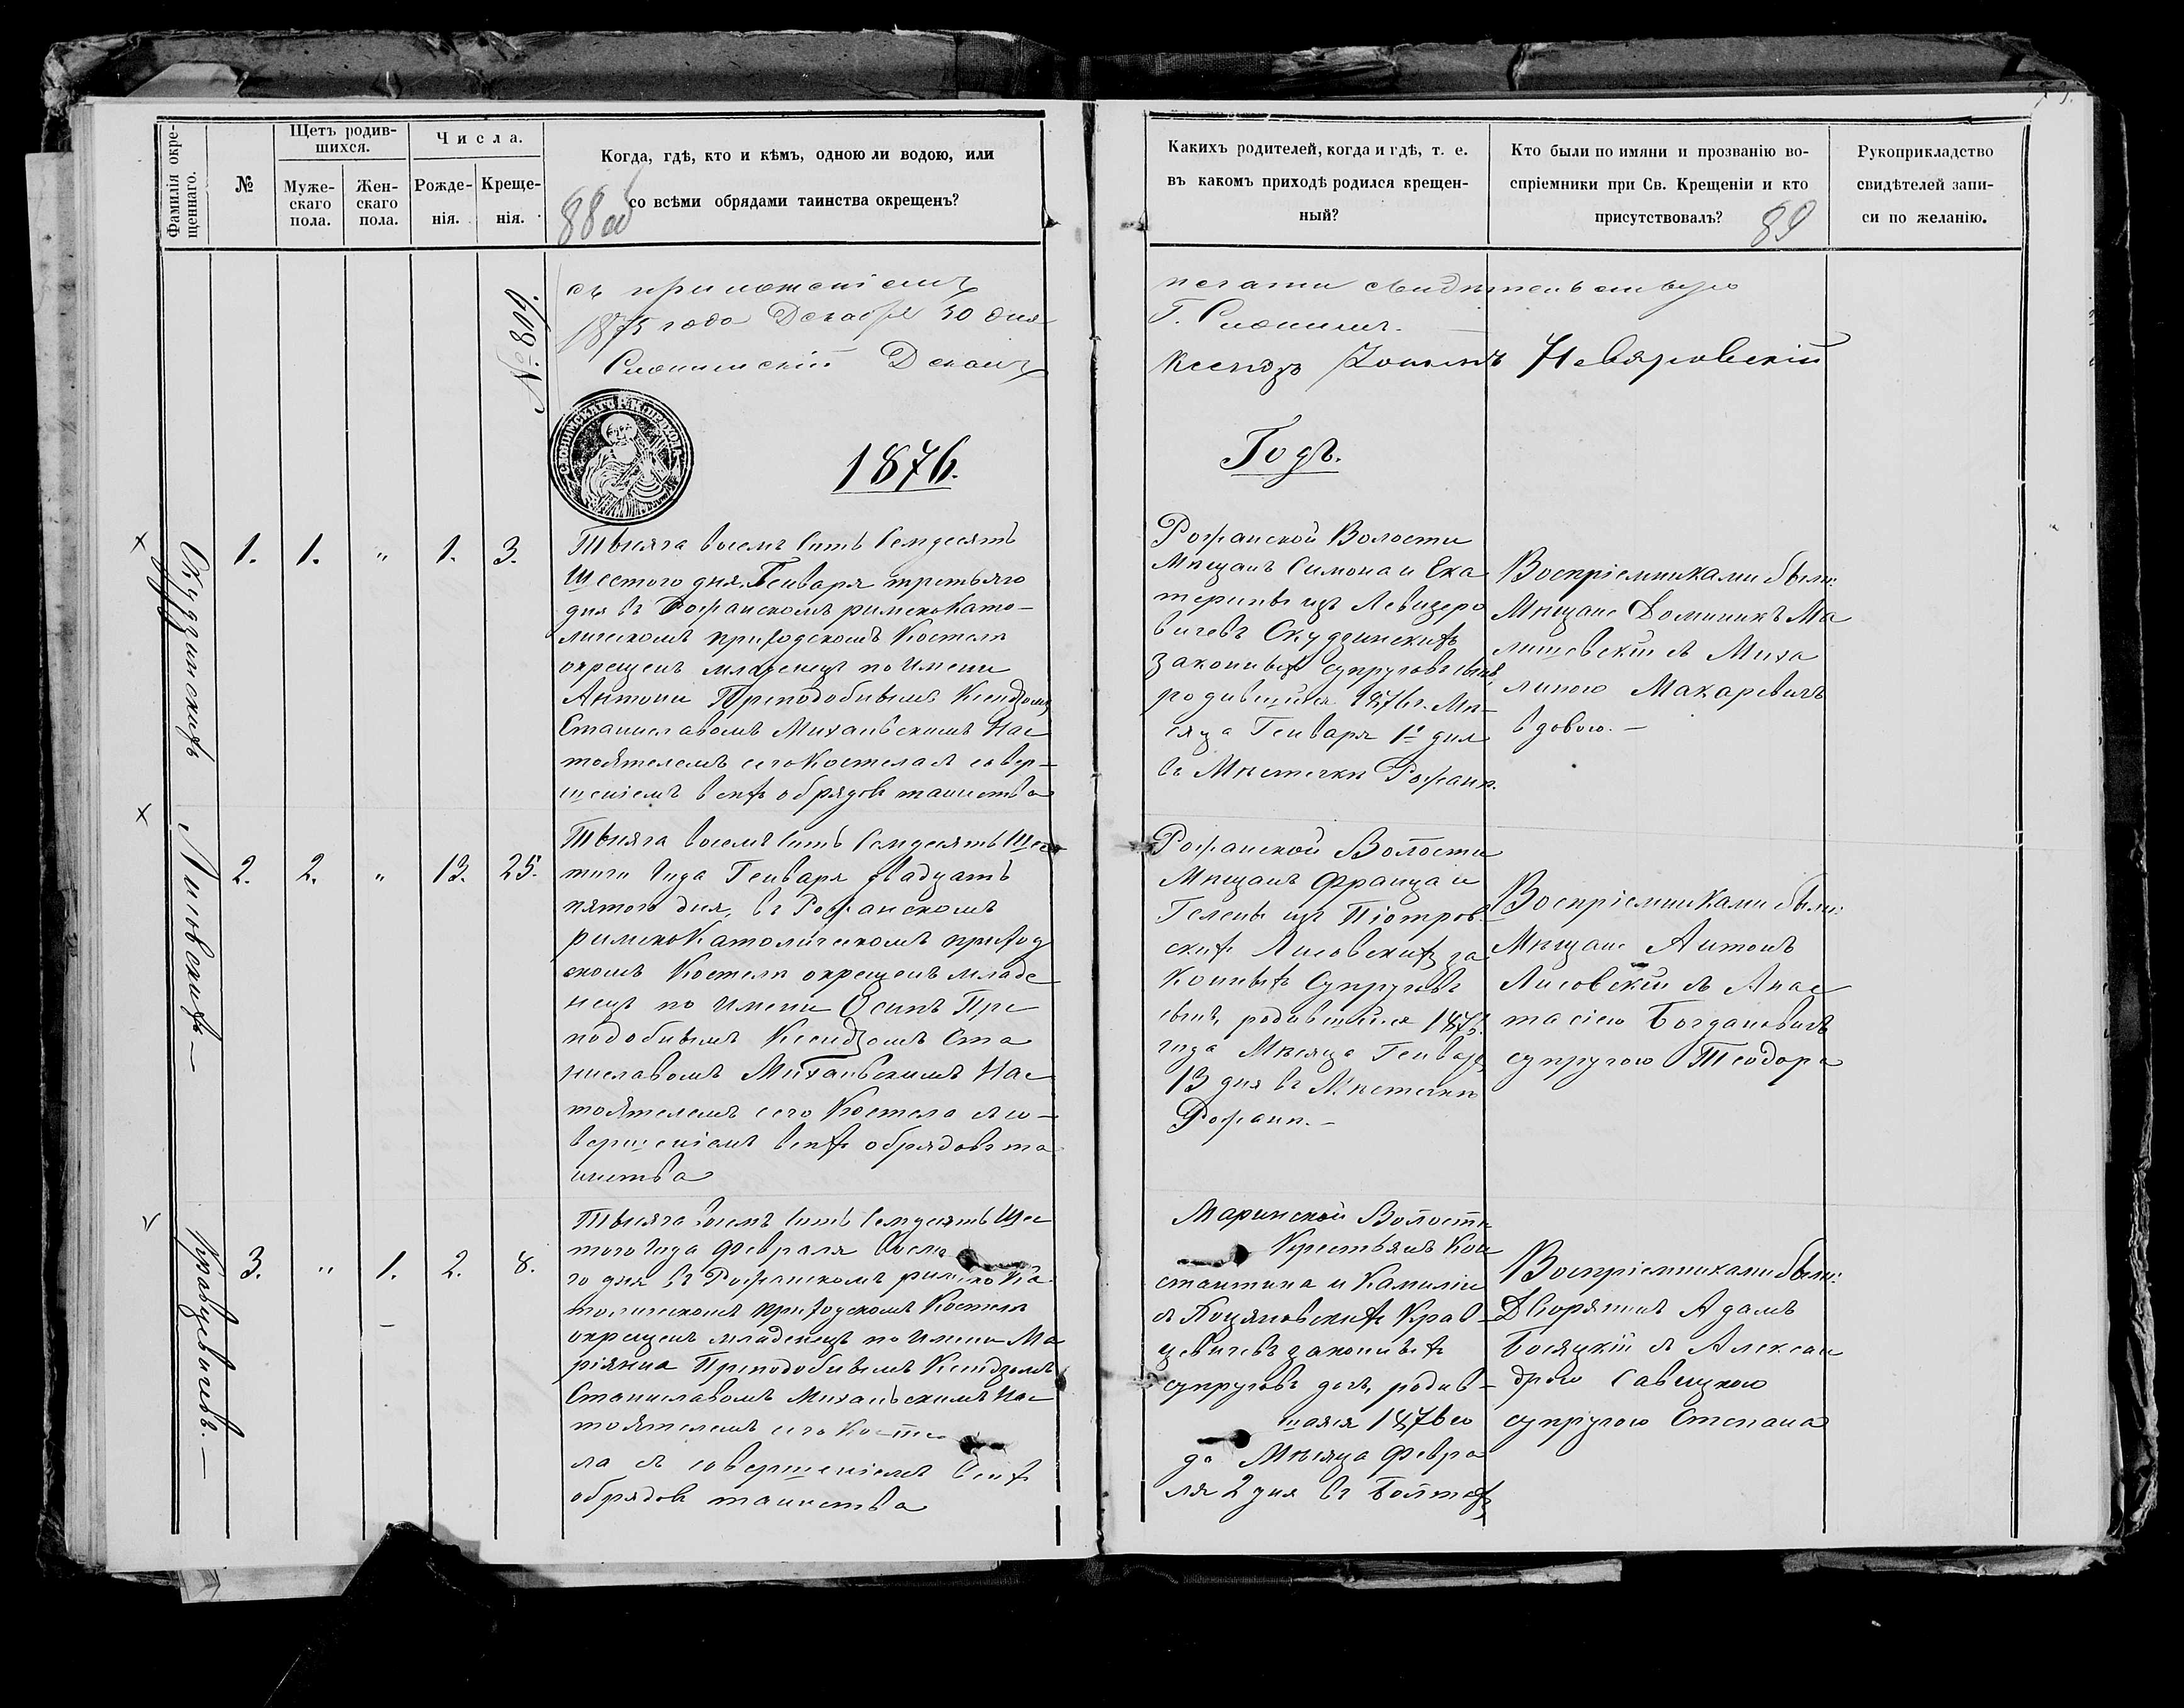 Фамилія окре-
щеннаго.
№
Щетъ родив-
шихся.
Муже-
скаго
пола.
Жен-
скаго
пола.
Числа.
Рожде-
нія.
Креще-
нія.
Когда, гдѣ, кто и кѣмъ, одною ли водою, или
со всѣми обрядами таинства окрещенъ?
88 об
съ приложеніемъ
1875 года Декабря 30 дня
Слонимскій Деканъ
№ 809.
1876.
Скудзинскихъ
1. 1. " 1. 3.
Тысяча восемь сотъ семдесятъ
Шестого дня Генваря третьяго
дня въ Рожанскомъ римскокато-
лическомъ приходскомъ Костелѣ
окрещенъ младенецъ по имени
Антони Преподобнымъ Ксендзомъ
Станиславомъ Михаивскимъ Нас
тоятелемъ сего Костела съ совер-
шеніемъ всѣхъ обрядовъ таинства
Лисовскихъ —
2. 2. " 13. 25.
Тысяча восемь сотъ семдесятъ Шес
того года Генваря двадцать
пятого дня, въ Рожанскомъ
римскокатолическомъ приход
скомъ Костелѣ окрещенъ младе
нецъ по имени Осипъ Пре
подобнымъ Ксендзомъ Ста
ниславомъ Михаивскимъ Нас
тоятелемъ сего Костела съ со-
вершеніемъ всѣхъ обрядовъ та
инства
Кравцевичевъ. —
3. " 1. 2. 8.
Тысяча восемь сотъ семдесятъ Шес
того года Февраля
го дня въ Рожанскомъ римскока
толическомъ приходскомъ Костелѣ
окрещенъ младенецъ по имени Ма
ріянна Преподобнымъ Ксендзомъ
Станиславомъ Михаивскимъ Нас
тоятелемъ сего Косте
ла съ совершеніемъ всѣхъ
обрядовъ таинства
Какихъ родителей, когда и гдѣ, т. е.
въ какомъ приходѣ родился крещен-
ный?
Кто были по имяни и прозванію во-
спріемники при Св. Крещеніи и кто
присутствовалъ?
89
Рукоприкладство
свидѣтелей запи-
си по желанію.
печати свидѣтельствую
Г. Слонимъ.
Ксендзъ Невяровскій
Годъ.
Рожанской Волости
Мѣщанъ Симона и Ека
терины изъ
вичевъ Скудзинскихъ
законныхъ супруговъ сынъ,
родившійся 1876 г. Мѣ-
сяца Генваря 1го дня
въ Мѣстечкѣ Рожанѣ.
Воспріемниками были:
Мѣщане Доминикъ Ма
лишевскій съ Миха
линою Макаревичъ
вдовою. —
Рожанской Волости
Мѣщанъ Франца и
Гелены изъ Піотров-
скихъ Лисовскихъ за
конныхъ Супруговъ
сынъ, родившійся 1876
года Мѣсяца Генваря
13 дня въ Мѣстечкѣ
Рожанѣ. —
Воспріемниками были:
Мѣщане Антонъ
Лисовскій съ Анас
тасіею Богдановичъ
супругою Теодора
Маринской Волости
Крестьянъ Кон
стантина и Камиліи
съ Коцяновскихъ Крав-
цевичевъ законныхъ
супруговъ дочь, родив-
шаяся 1876 го
да Мѣсяца Февра
ля 2 дня въ
Воспріемниками были:
Дворянинъ Адамъ
Босяцкій съ Алексан
дрою Савицкою
супругою Степана